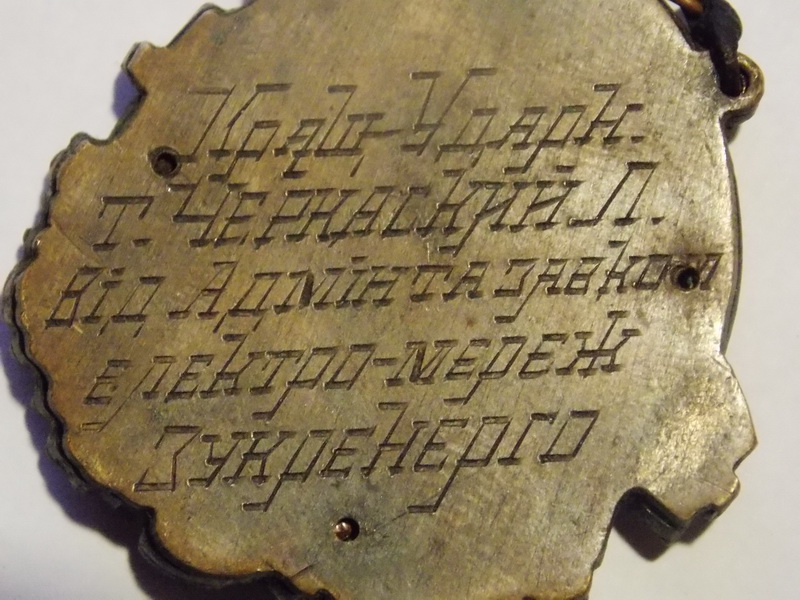 Кращ-Ударн.
т. Черкаский Л.
від Адмін та завком
електро-мереж
Зукренерго